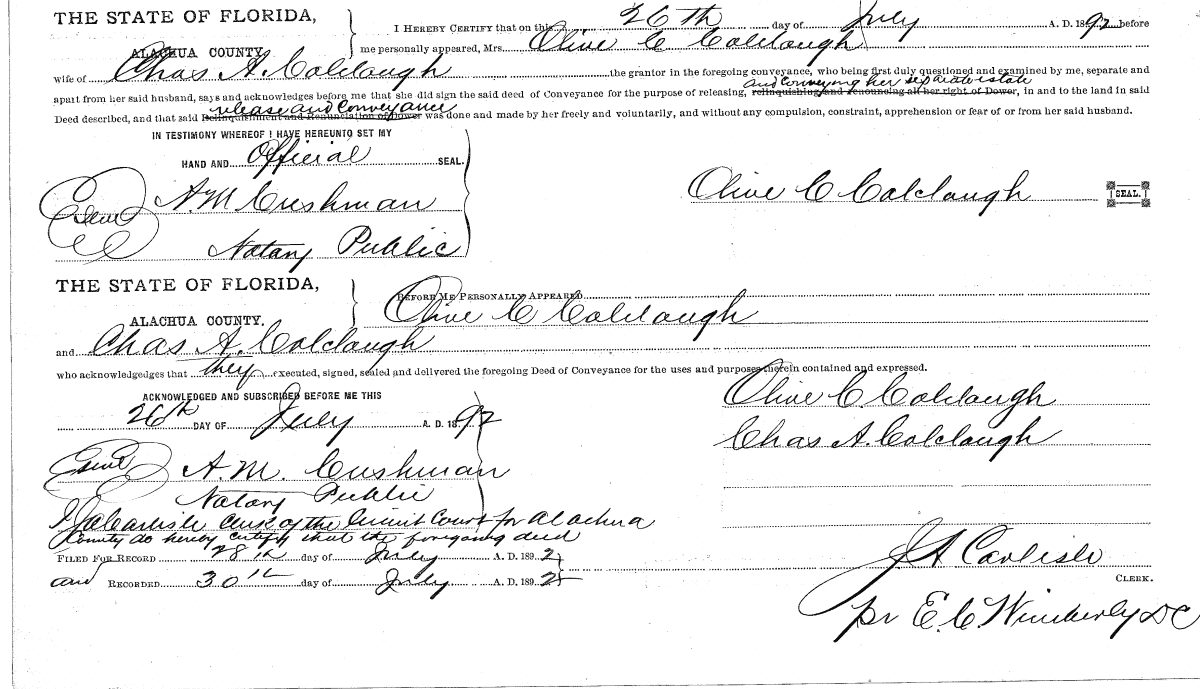 THE STATE OF FLORIDA, I HEREBY CERTIFY that on this 26th day of July A. D. 1892 before
ALACHUA COUNTY. me personally appeared, Mrs. Olive C Colclough
wife of Chas A. Colclough the grantor in the foregoing conveyance, who being first duly questioned and examined by me, separate and
and conveying her separate estate
apart from her said husband, says and acknowledges before me that she did sign the said deed of Conveyance for the purpose of releasing, relinquishing and renouncing all her right of Dower, in and to the land in said
release and Conveyance
Deed described, and that said Relinquishment and Renunciation of Dower was done and made by her freely and voluntarily, and without any compulsion, constraint, apprehension or fear of or from her said husband.
IN TESTIMONY WHEREOF I HAVE HEREUNTO SET MY
HAND AND Official SEAL.
Seal A. M Cushman Olive C Colclough SEAL.
Notary Public
THE STATE OF FLORIDA, BEFORE ME PERSONALLY APPEARED
ALACHUA COUNTY. Olive C Colclough
and Chas A. Colclough
who acknowledgedges that they executed, signed, sealed and delivered the foregoing Deed of Conveyance for the uses and purposes therein contained and expressed.
ACKNOWLEDGED AND SUBSCRIBED BEFORE ME THIS Olive C. Colclough
26th DAY OF July A. D. 1892
Chas A. Colclough
Seal A. M. Cushman
Notary Public
I J A Carlisle Clerk of the Circuit Court for Alachua
County do hereby certify that the foregoing deed
FILED FOR RECORD 28th day of July A. D. 1892 J A Carlisle
and RECORDED 30th day of July A. D. 1892 CLERK.
pr E. C. Wimberly DC